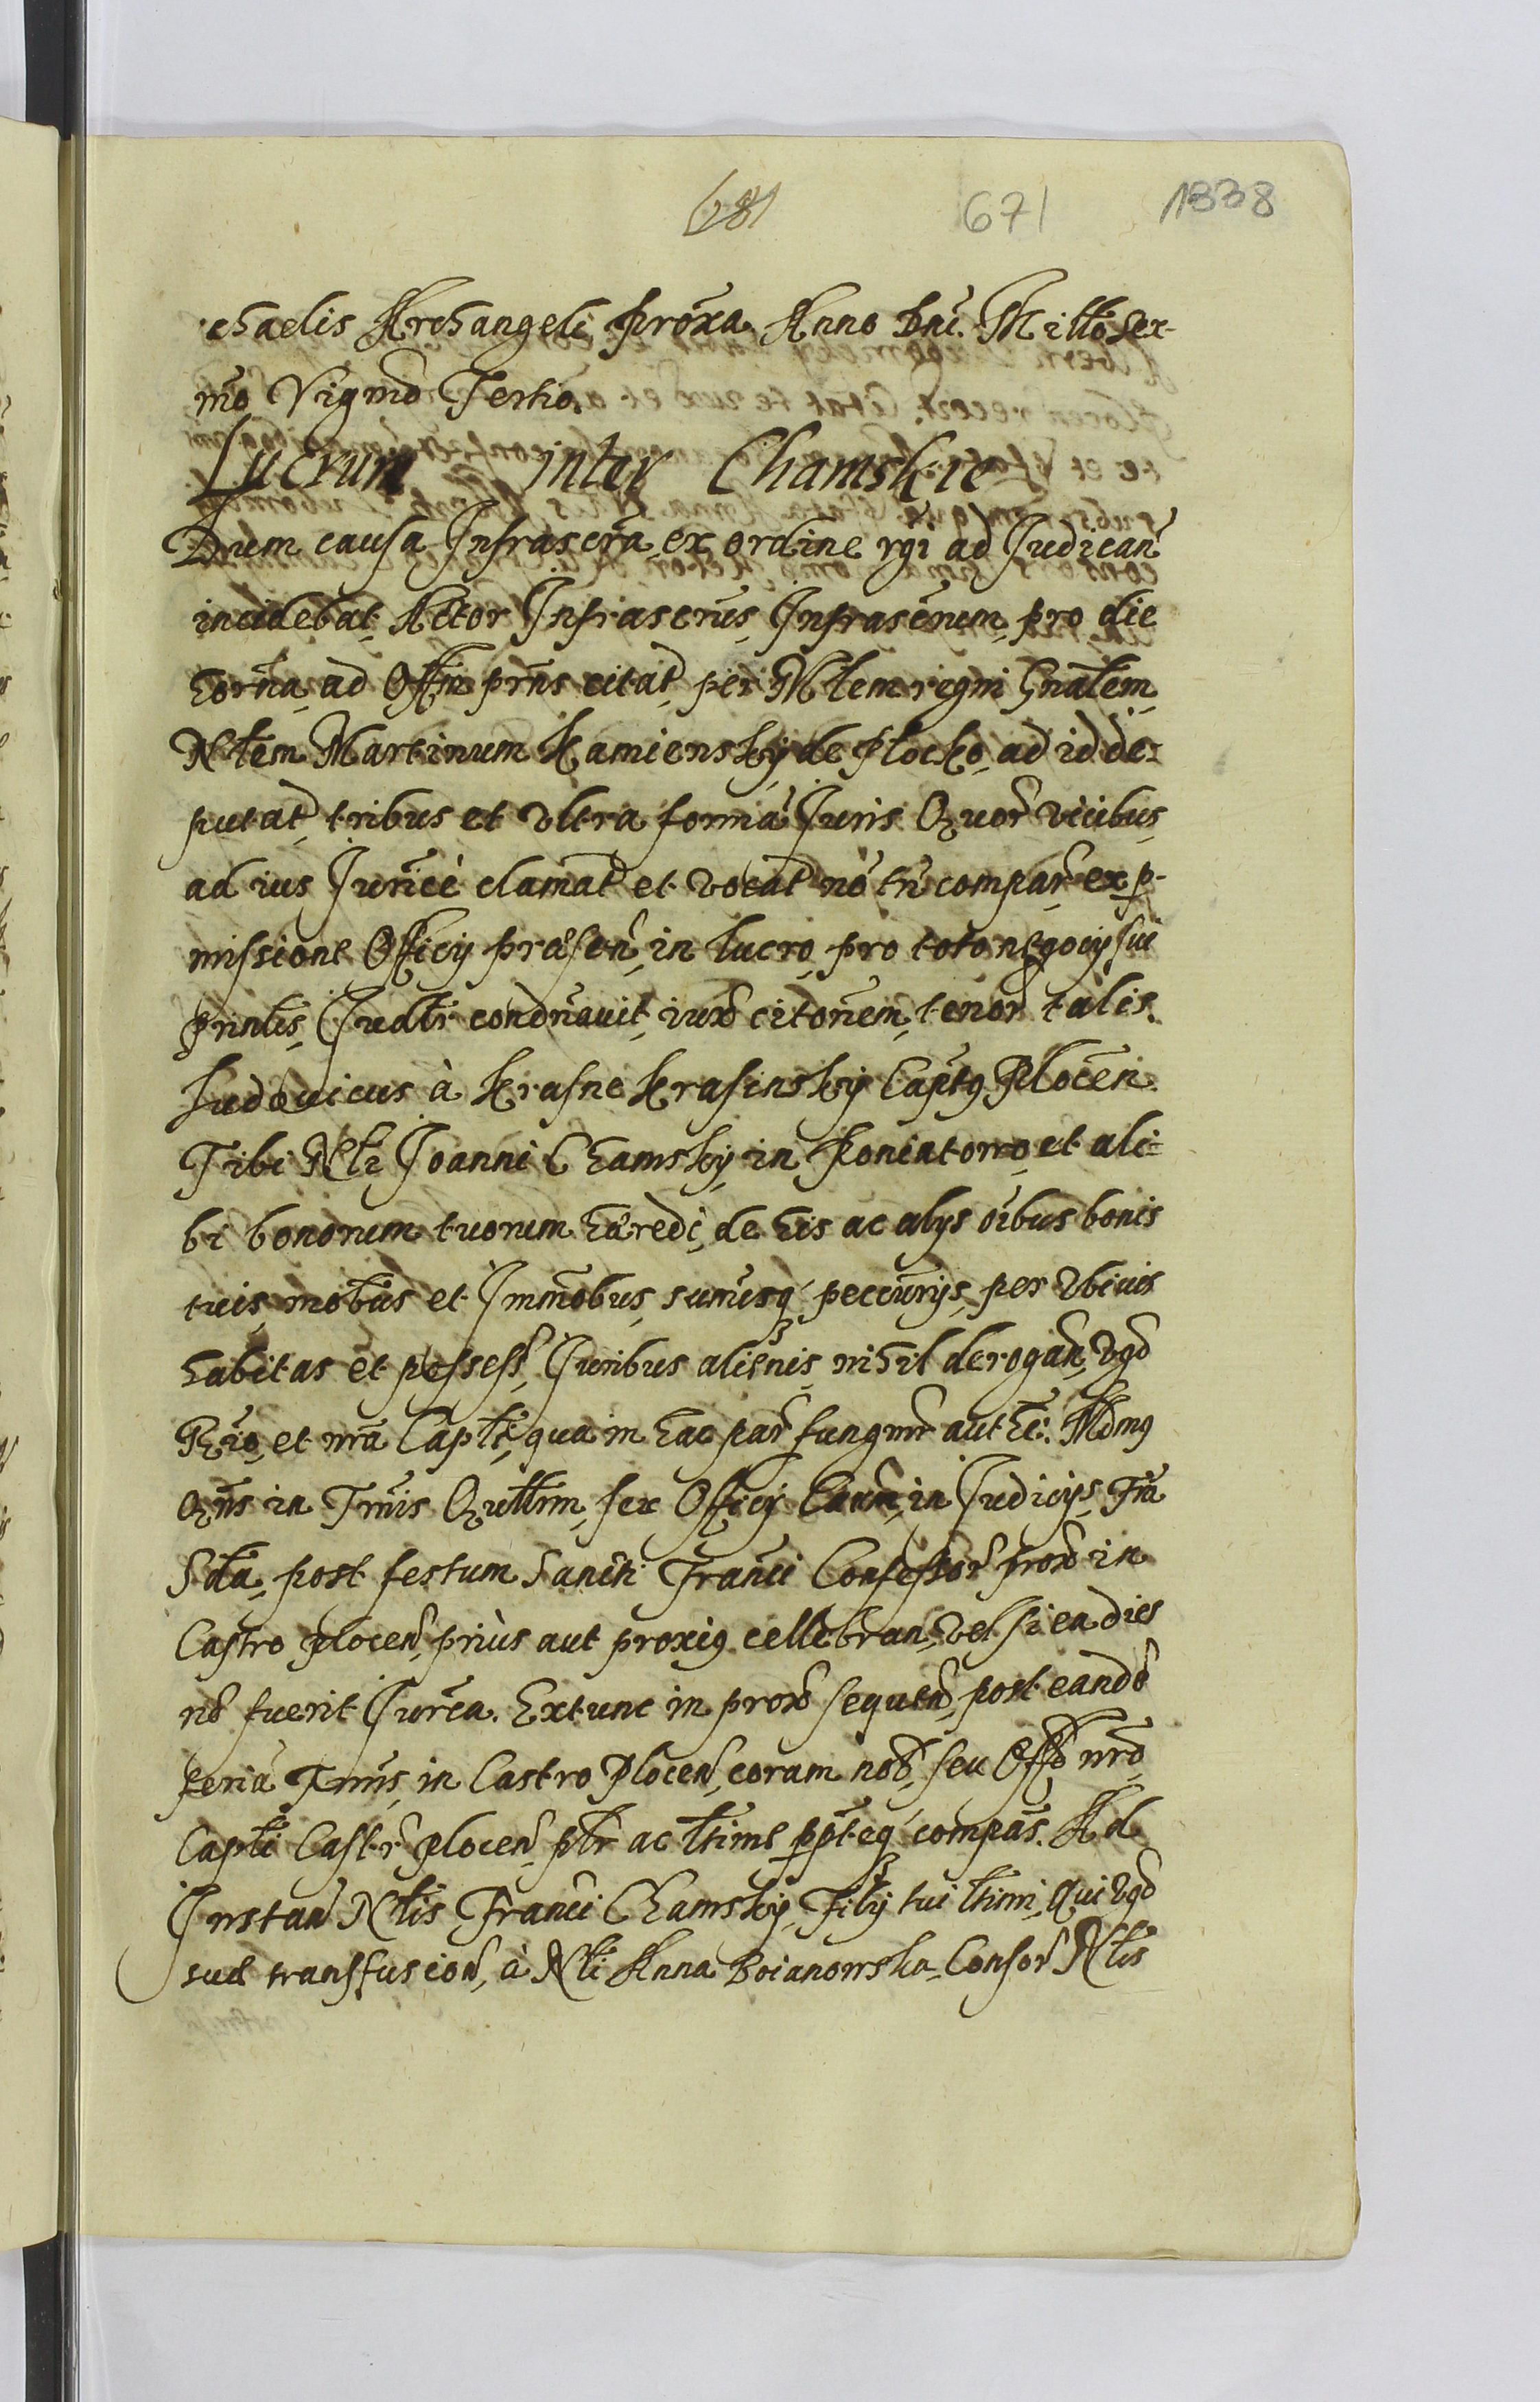 681 671 1338
chaelis Archangeli proxa Anno Dni. Millo Sex-
mo Vigmo Tertio.
Lucrum inter Chamskie
Dum causa Infrascra ex ordine rgi ad Judican
incidebat, Actor Infrascrus, Infrascrum, pro die
horna, ad Offm prns citat, per Mtem regni Gnalem,
Nlem Martinum Kamiensky de Plocko, ad id de:
putat, tribus et vltra forma Juris Quor vicibus,
ad ius Jurice clamat et vocat no tn compar, ex p-
missione Officy præsen, in lucro, pro toto negocy sui
prnlis, Judlr condnauit, iuxo citonem, tenor talis.
Ludouicus à Krasne Krasinsky Captg Plocen.
Tibi Nli Joanni Chamsky in Koniatowo, et ali=
bi bonorum tuorum hæredi, de his ac alys oibus bonis
tuis, mobus et Immobus, sumisq pecunys, per vbiuis
habitas et possess, Juribus alienis, nihil derogan, vgo
Rgio, et nra Capli, qua in hac par fungmr authe: Mdmg
Qtns in Trmis Qullrm, seu Officy Caurn, in Judicys, Fra
Sda, post festum Sancti Franci Confessor prox in
Castro plocen, priùs aut proxig cellebran, vel si ea dies
no fuerit Jurca. Extunc in prox sequen, post eando
feria Trmis, in Castro Plocen, coram nob, seu Offo nro
Capli Castr Plocen, plr ac ltime ppteq compas. Ad
Instan Nlis Franci Chamsky, Fily tui ltimi, qui vgo
suæ transfusion, à Nli Anna Boianowska, Consor Nlis